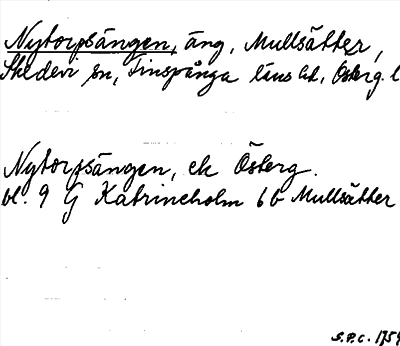 Nytorpsängen, äng, Mullsätter,
Skedevi sn, Finspånga läns hd, Österg. l
Nytorpsängen, ek Österg.
bl. 9 G Katrineholm 6 b Mullsätter
S.P.C.